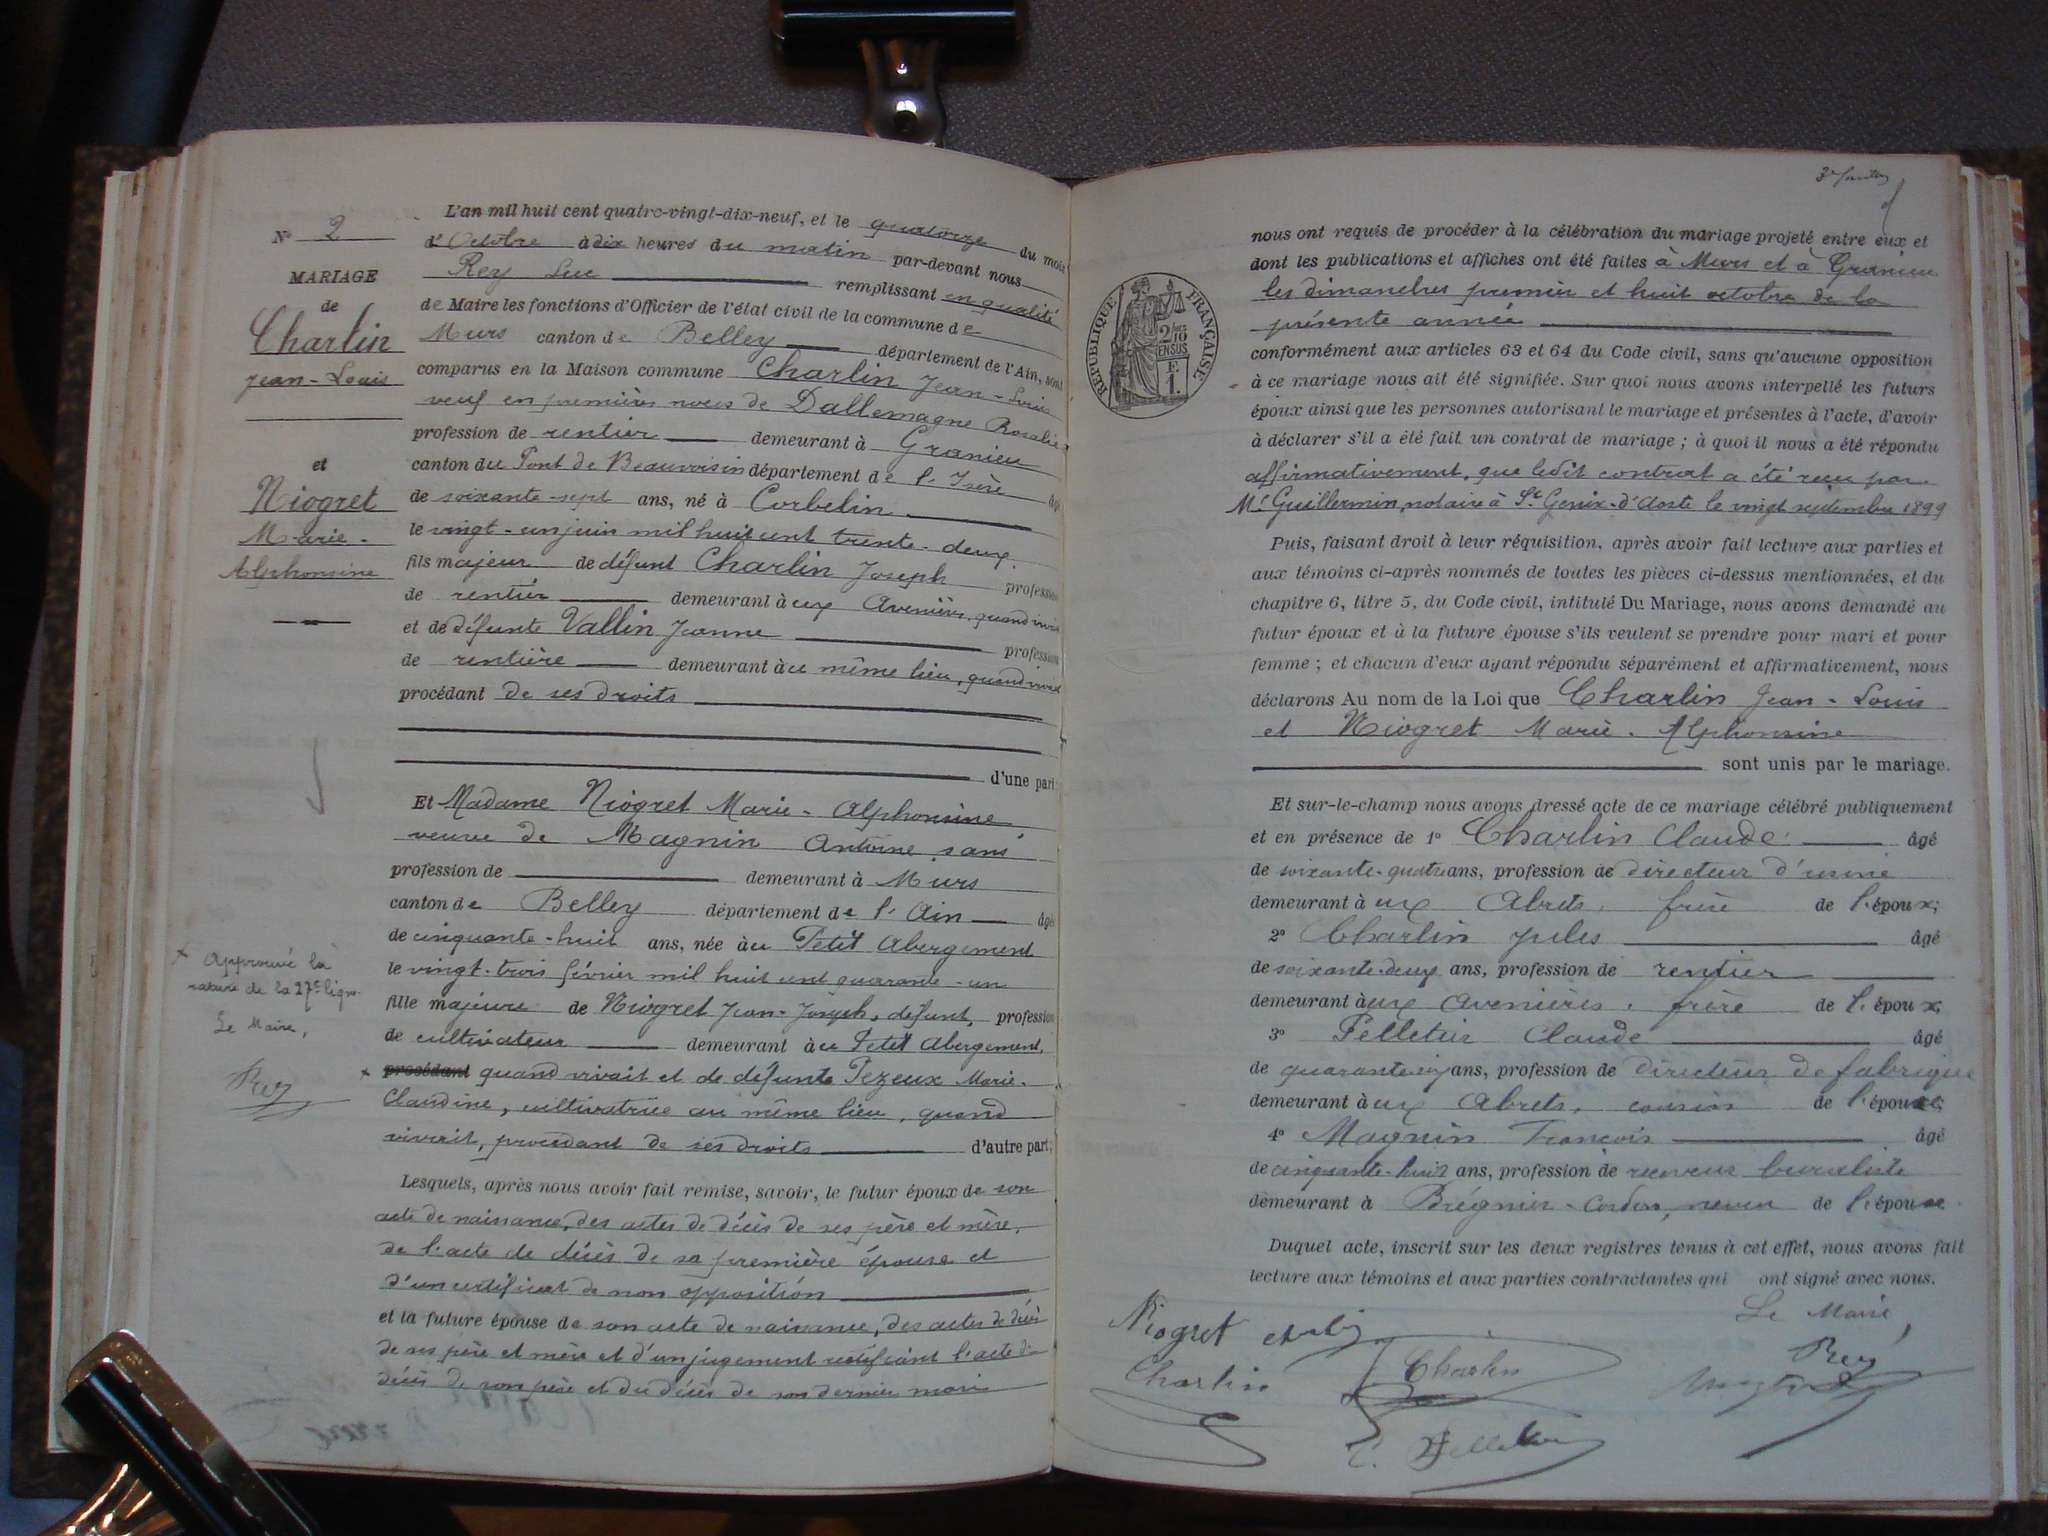 Nº 2
MARIAGE
de
Charlin
Jean-Louis
et
Niogret
Marie-
Alphonsine
L'an mil huit cent quatre-vingt-dix-neuf, et le quatorze du mois
d'Octobre à dix heures du matin par-devant nous
Rey Luc remplissant en qualité
de Maire les fonctions d'Officier de l'état civil de la commune de
Murs canton de Belley département de l'Ain, sont
comparus en la Maison commune Charlin Jean-Louis
veuf en premières noces de Dallemagne Rosalie
profession de rentier demeurant à Granieu
canton du Pont de Beauvoisin département de l'Isère âgé
de soixante-sept ans, né à Corbelin
le vingt-un juin mil huit cent trente-deux,
fils majeur de défunt Charlin Joseph profession
de rentier demeurant à ux Avenières, quand vivait
et de défunte Vallin Jeanne profession
de rentière demeurant à u même lieu, quand vivait
procédant de ses droits
d'une part
Et Madame Niogret Marie-Alphonsine
veuve de Magnin Antoine, sans
profession de demeurant à Murs
canton de Belley département de l'Ain âgée
de cinquante-huit ans, née à u Petit Abergement
le vingt-trois février mil huit cent quarante-un
fille majeure de Niogret Jean-Joseph, défunt, profession
de cultivateur demeurant à u Petit Abergement,
x procédant quand vivait et de défunte Pezeux Marie-
Claudine, cultivatrice au même lieu, quand
vivait, procédant de ses droits d'autre part;
x Approuvé la
rature de la 27e ligne.
Le Maire,
Rey
Lesquels, après nous avoir fait remise, savoir, le futur époux de son
acte de naissance, des actes de décès de ses père et mère,
de l'acte de décès de sa première épouse et
d'un certificat de non opposition
et la future épouse de son acte de naissance, des actes de décès
de ses père et mère et d'un jugement rectifiant l'acte de
décès de son père et du décès de son dernier mari
nous ont requis de procéder à la célébration du mariage projeté entre eux et
dont les publications et affiches ont été faites à Murs et à Granieu
les dimanches premier et huit octobre de la
présente année
RÉPUBLIQUE FRANÇAISE
conformément aux articles 63 et 64 du Code civil, sans qu'aucune opposition
à ce mariage nous ait été signifiée. Sur quoi nous avons interpellé les futurs
époux ainsi que les personnes autorisant le mariage et présentes à l'acte, d'avoir
à déclarer s'il a été fait un contrat de mariage ; à quoi il nous a été répondu
affirmativement, que ledit contrat a été reçu par
Mr Guillermin, notaire à St Genix-d'Aoste le vingt septembre 1899
Puis, faisant droit à leur réquisition, après avoir fait lecture aux parties et
aux témoins ci-après nommés de toutes les pièces ci-dessus mentionnées, et du
chapitre 6, titre 5, du Code civil, intitulé Du Mariage, nous avons demandé au
futur époux et à la future épouse s'ils veulent se prendre pour mari et pour
femme ; et chacun d'eux ayant répondu séparément et affirmativement, nous
déclarons Au nom de la Loi que Charlin Jean-Louis
et Niogret Marie-Alphonsine
sont unis par le mariage.
Et sur-le-champ nous avons dressé acte de ce mariage célébré publiquement
et en présence de 1º Charlin Claude âgé
de soixante-quatre ans, profession de directeur d'usine
demeurant à ux Abrets, frère de l'époux;
2º Charlin Jules âgé
de soixante-deux ans, profession de rentier
demeurant à ux Avenières, frère de l'époux;
3º Pelletier Claude âgé
de quarante-six ans, profession de directeur de fabrique
demeurant à ux Abrets, cousin de l'épouse;
4º Magnin François âgé
de cinquante-huit ans, profession de receveur buraliste
demeurant à Brégnier-Cordon, neveu de l'épouse
Duquel acte, inscrit sur les deux registres tenus à cet effet, nous avons fait
lecture aux témoins et aux parties contractantes qui ont signé avec nous.
Le Maire,
Niogret
Rey
Charlin
Charlin
C. Pelletier